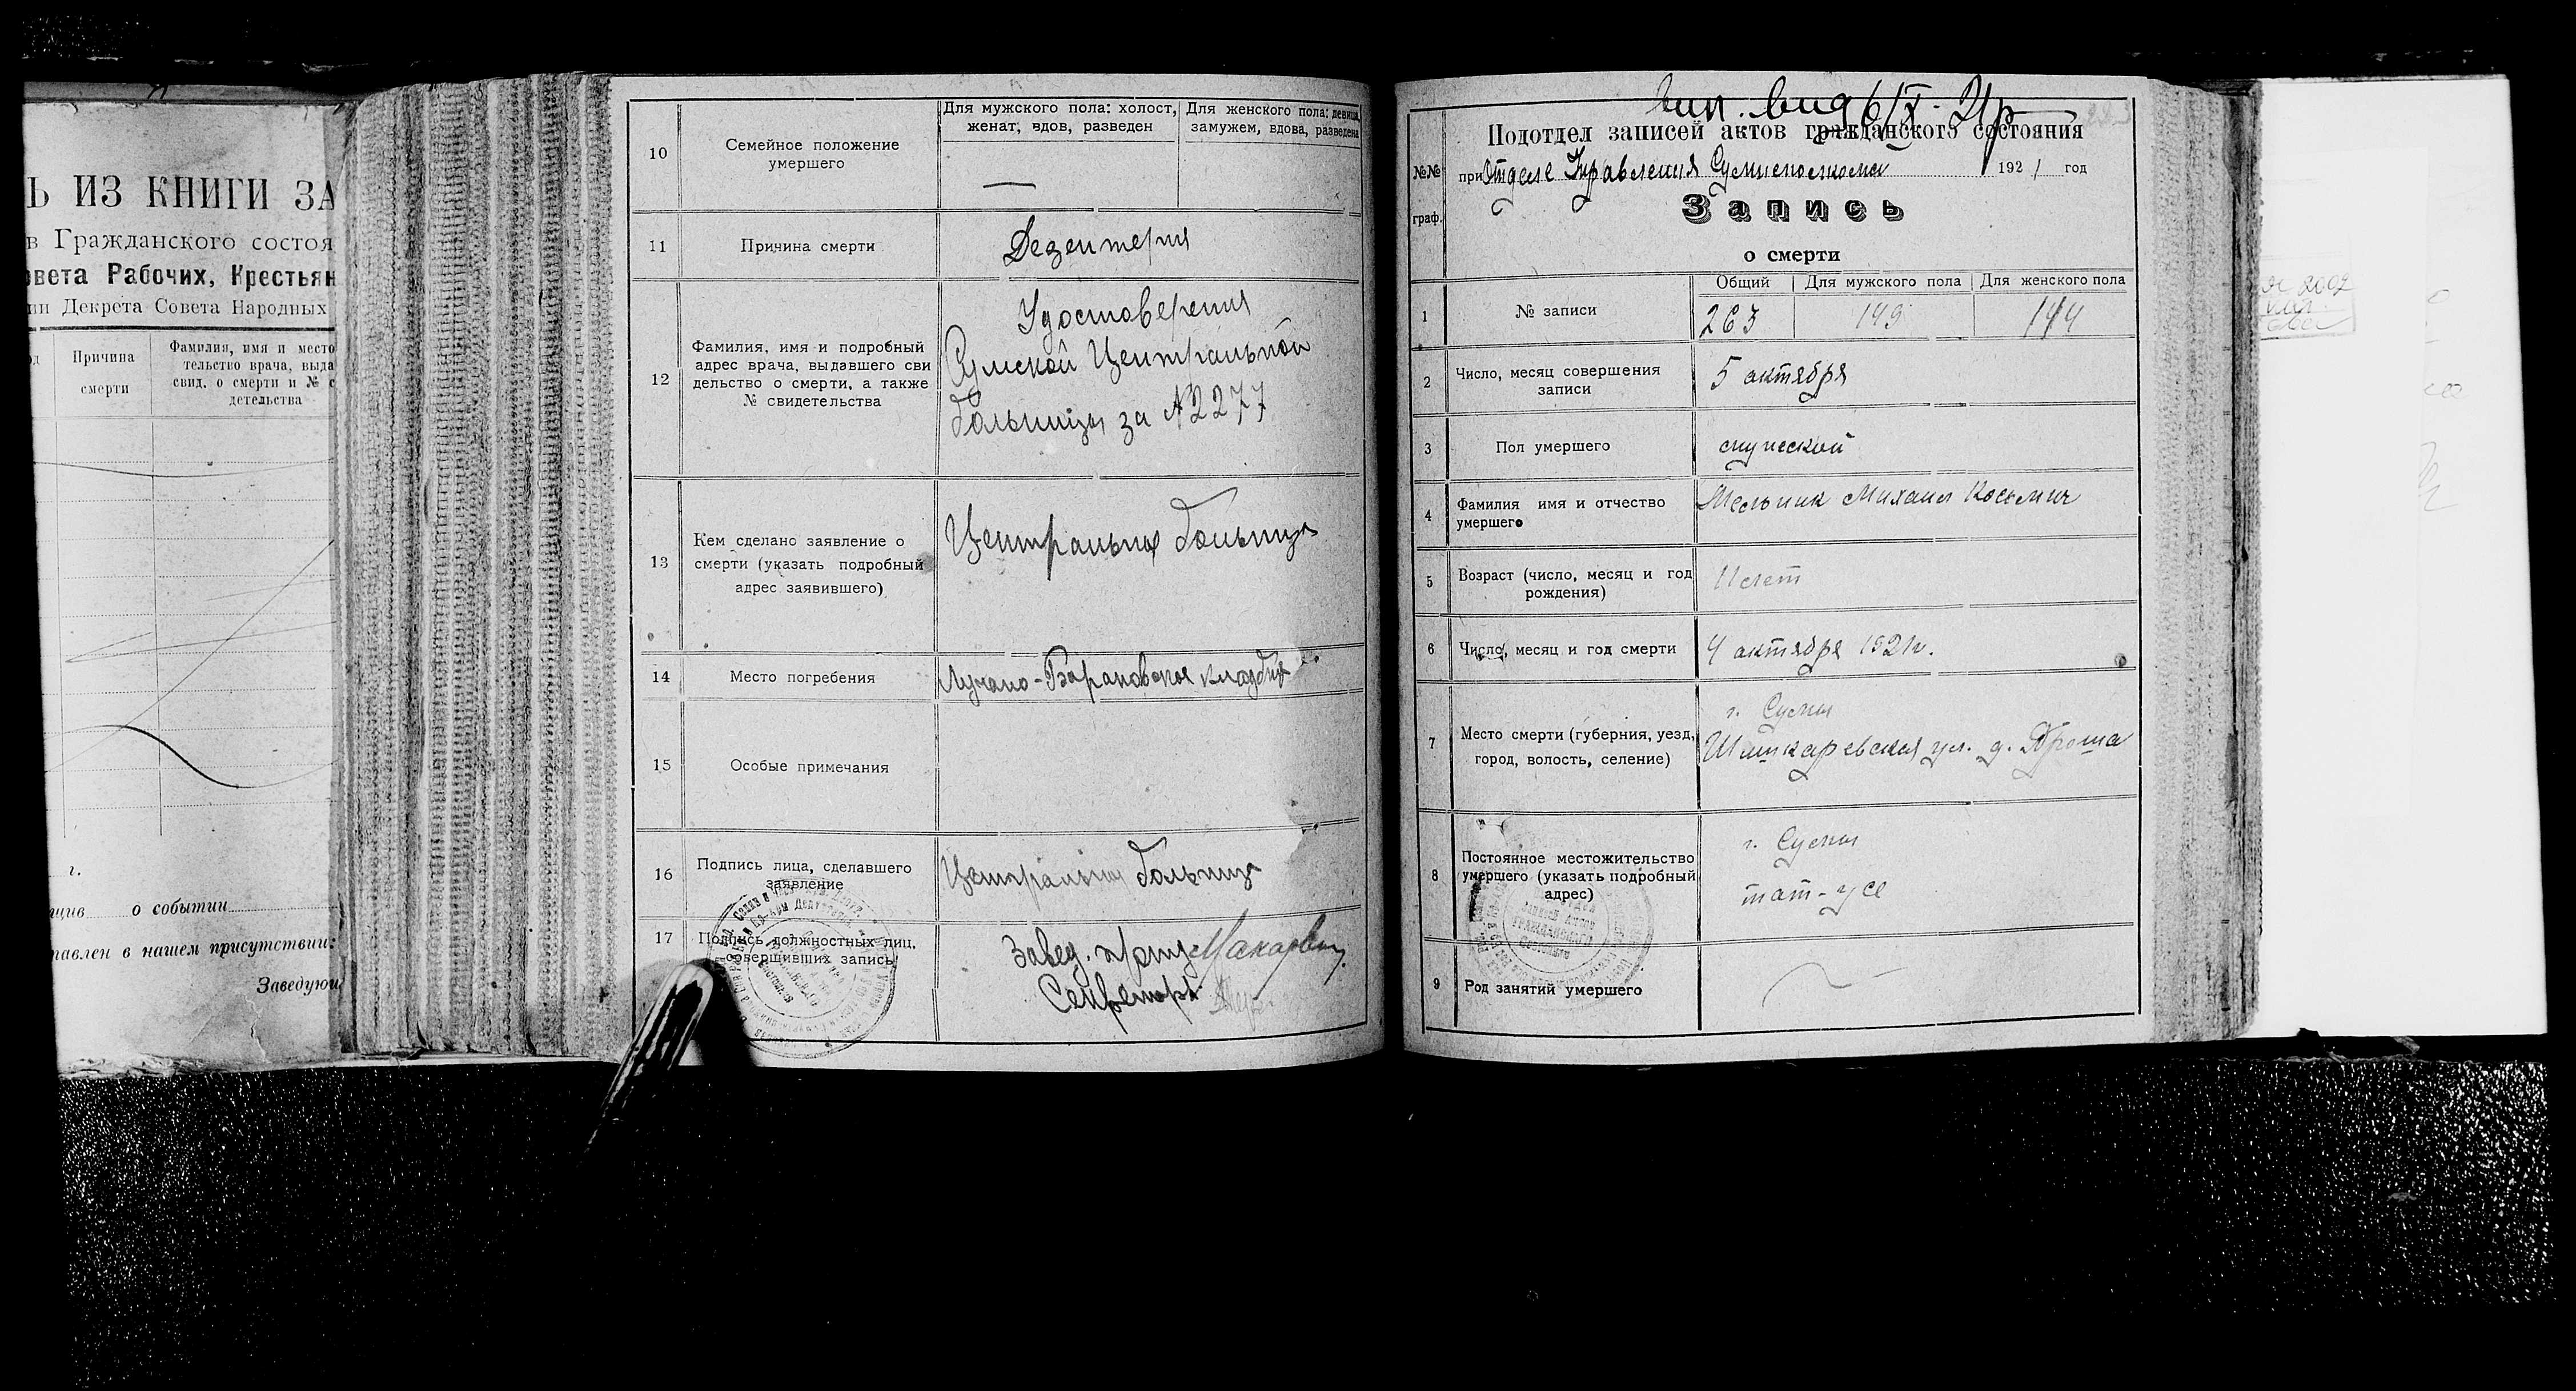 Ь ИЗ КНИГИ ЗА
в Гражданского состоя
овета Рабочих, Крестьян
ии Декрета Совета Народных
Причина
смерти
Фамилия, имя и место
тельство врача, выда
свид. о смерти и № с
детельства
г.
о событии
тавлен в нашем присутствии:
Заведую
10
Семейное положение
умершего
Для мужского пола: холост,
женат, вдов, разведен
Для женского пола: девица,
замужем, вдова, разведена
—
11
Причина смерти
Дезентерия
12
Фамилия, имя и подробный
адрес врача, выдавшего сви
дельство о смерти, а также
№ свидетельства
Удостоверения
Сумской Центральной
больницы за №2277
13
Кем сделано заявление о
смерти (указать подробный
адрес заявившего)
Центральная больница
14
Место погребения
Лучано-Барановское кладбище
15
Особые примечания
16
Подпись лица, сделавшего
заявление
Центральная больница
17
Подпись должностных лиц,
совершивших запись
Завед.
Секретарь
6/X 21
Подотдел записей актов гражданского состояния
№№
граф.
при Отделе Управления Сумисполкома 1921 год
Запись
о смерти
Общий
Для мужского пола
Для женского пола
1
№ записи
263
149
144
2
Число, месяц совершения
записи
5 октября
3
Пол умершего
мужеской
4
Фамилия имя и отчество
умершего
Мельник Михаил Косьмич
5
Возраст (число, месяц и год
рождения)
11 лет
6
Число, месяц и год смерти
4 октября 1921г.
7
Место смерти (губерния, уезд,
город, волость, селение)
г. Сумы
ул. д.
8
Постоянное местожительство
умершего (указать подробный
адрес)
г. Сумы
там-же
9
Род занятий умершего